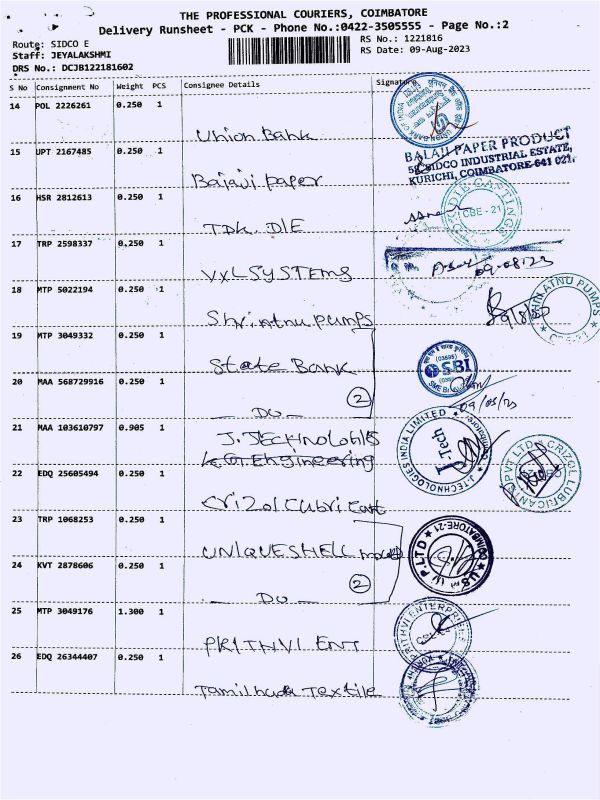 THE PROFESSIONAL COURIERS, COIMBATORE
Delivery Runsheet - PCK - Phone No.:0422-3505555 - Page No.:2
Route: SIDCO E
RS No.: 1221816
Staff: JEYALAKSHMI
RS Date: 09-Aug-2023
DRS No.: DCJB122181602
S No Consignment No Weight PCS Consignee Details Signature
14 POL 2226261 0.250 1
Union Bank
15 UPT 2167485 0.250 1
BALAJI PAPER PRODUCT
SIDCO INDUSTRIAL ESTATE,
KURICHI, COIMBATORE-641 021.
Balaji paper
16 HSR 2812613 0.250 1
DIE CASTINGS
CBE - 21
TDK. DIE
17 TRP 2598337 0.250 1
VXLSYSTEMS
09-08-23
18 MTP 5022194 0.250 1
Shri Atnu pumps
SHRI ATNU PUMPS
19 MTP 3049332 0.250 1
State Bank
SBI
20 MAA 568729916 0.250 1
2
Do
21 MAA 103610797 0.905 1
J. Technologies
J.Tech
J. TECHNOLOGIES INDIA LIMITED
Engineering
22 EDQ 25605494 0.250 1
CRIZOL LUBRICANT PVT LTD
Crizol Lubricant
23 TRP 1068253 0.250 1
UNIQUESHELL
COIMBATORE-21
24 KVT 2878606 0.250 1
2
Do
25 MTP 3049176 1.300 1
PRITHVI ENT
PRITHVI ENTERPRISES
26 EDQ 26344407 0.250 1
Tamilnadu Textile